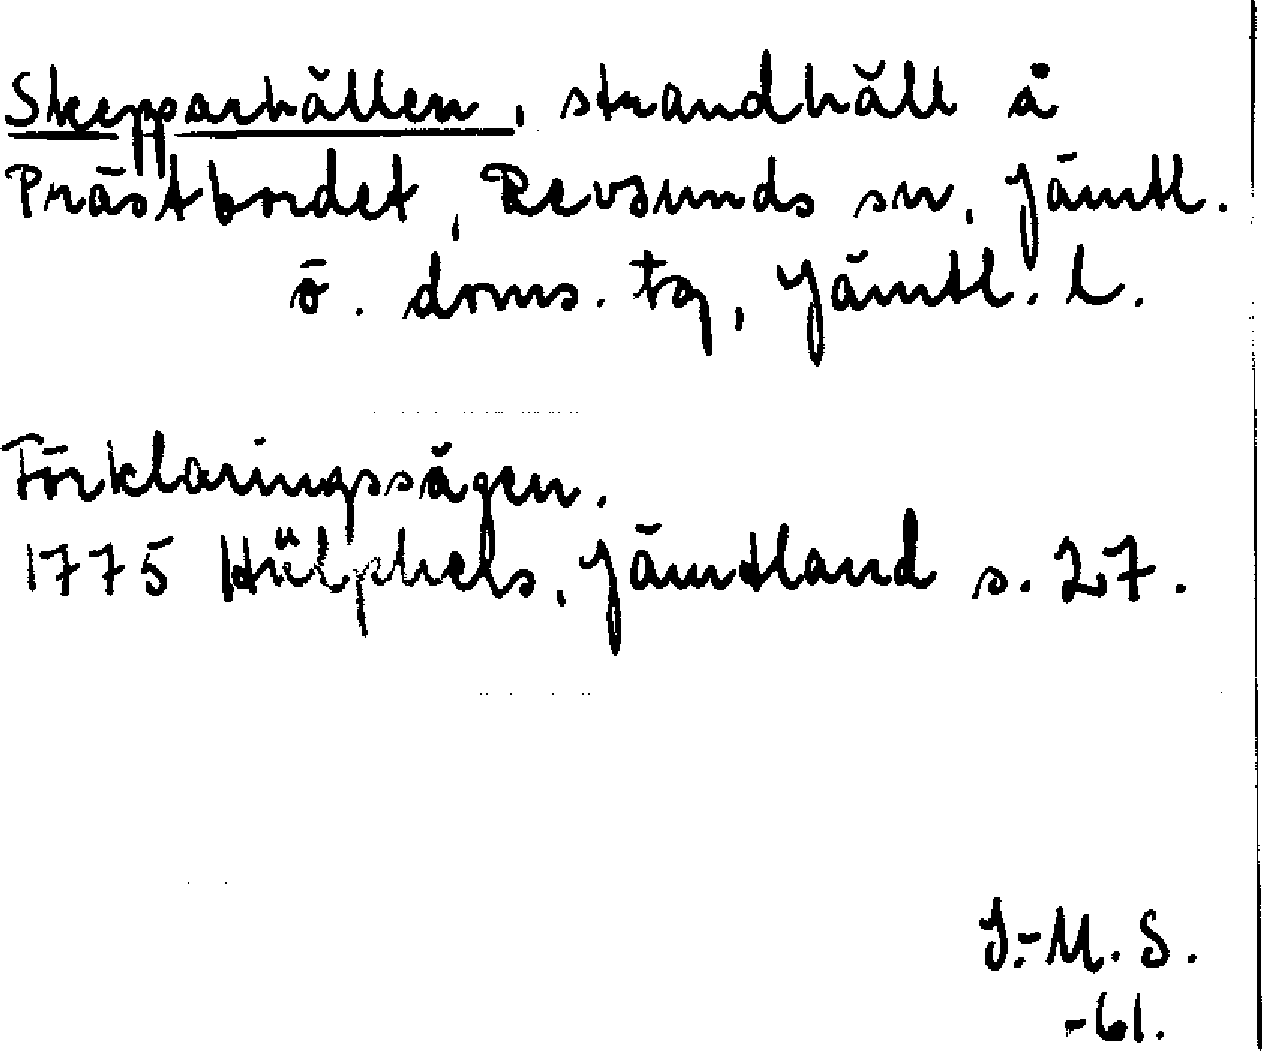 Skepparhällen, strandhäll å
Prästbordet, Revsunds sn, Jämtl.
ö. doms. tg, Jämtl. l.
Förklaringssägen.
1775 Hülphels, Jämtland s. 27.
I.-M. S.
-61.